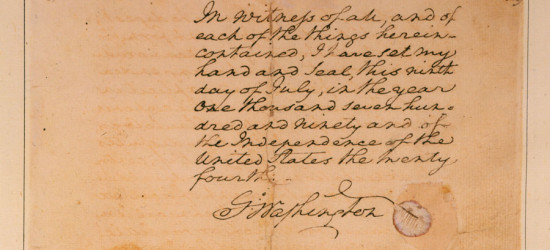 In witness of all, and of
each of the things herein
contained, I have set my
hand and Seal, this ninth
day of July, in the year
One thousand seven hun-
dred and ninety and of
the Independence of the
United States the twenty
fourth.
G. Washington